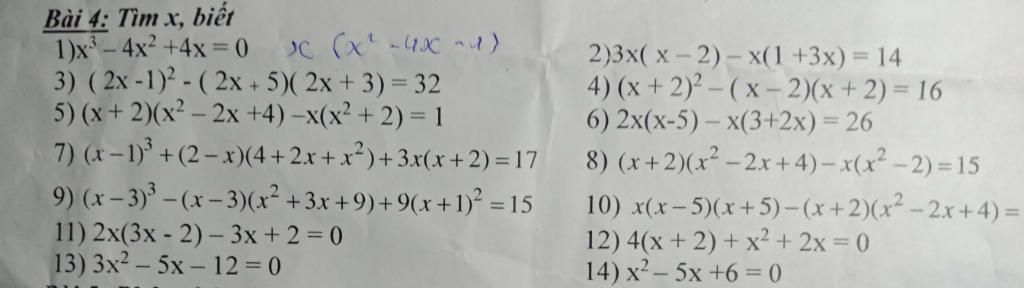 Bài 4: Tìm x, biết
1)x³ – 4x² +4x = 0 x (x² - 4x - 1)
2)3x( x – 2) – x(1 +3x) = 14
3) ( 2x -1)² - ( 2x + 5)( 2x + 3) = 32
4) (x + 2)² – ( x – 2)(x + 2) = 16
5) (x + 2)(x² – 2x +4) –x(x² + 2) = 1
6) 2x(x-5) – x(3+2x) = 26
7) (x–1)³ +(2–x)(4+2x+x²)+3x(x+2)=17
8) (x+2)(x²–2x+4)–x(x²–2)=15
9) (x–3)³ –(x–3)(x²+3x+9)+9(x+1)² =15
10) x(x–5)(x+5)–(x+2)(x²–2x+4)=
11) 2x(3x - 2) – 3x + 2 = 0
12) 4(x + 2) + x² + 2x = 0
13) 3x² – 5x – 12 = 0
14) x² – 5x +6 = 0